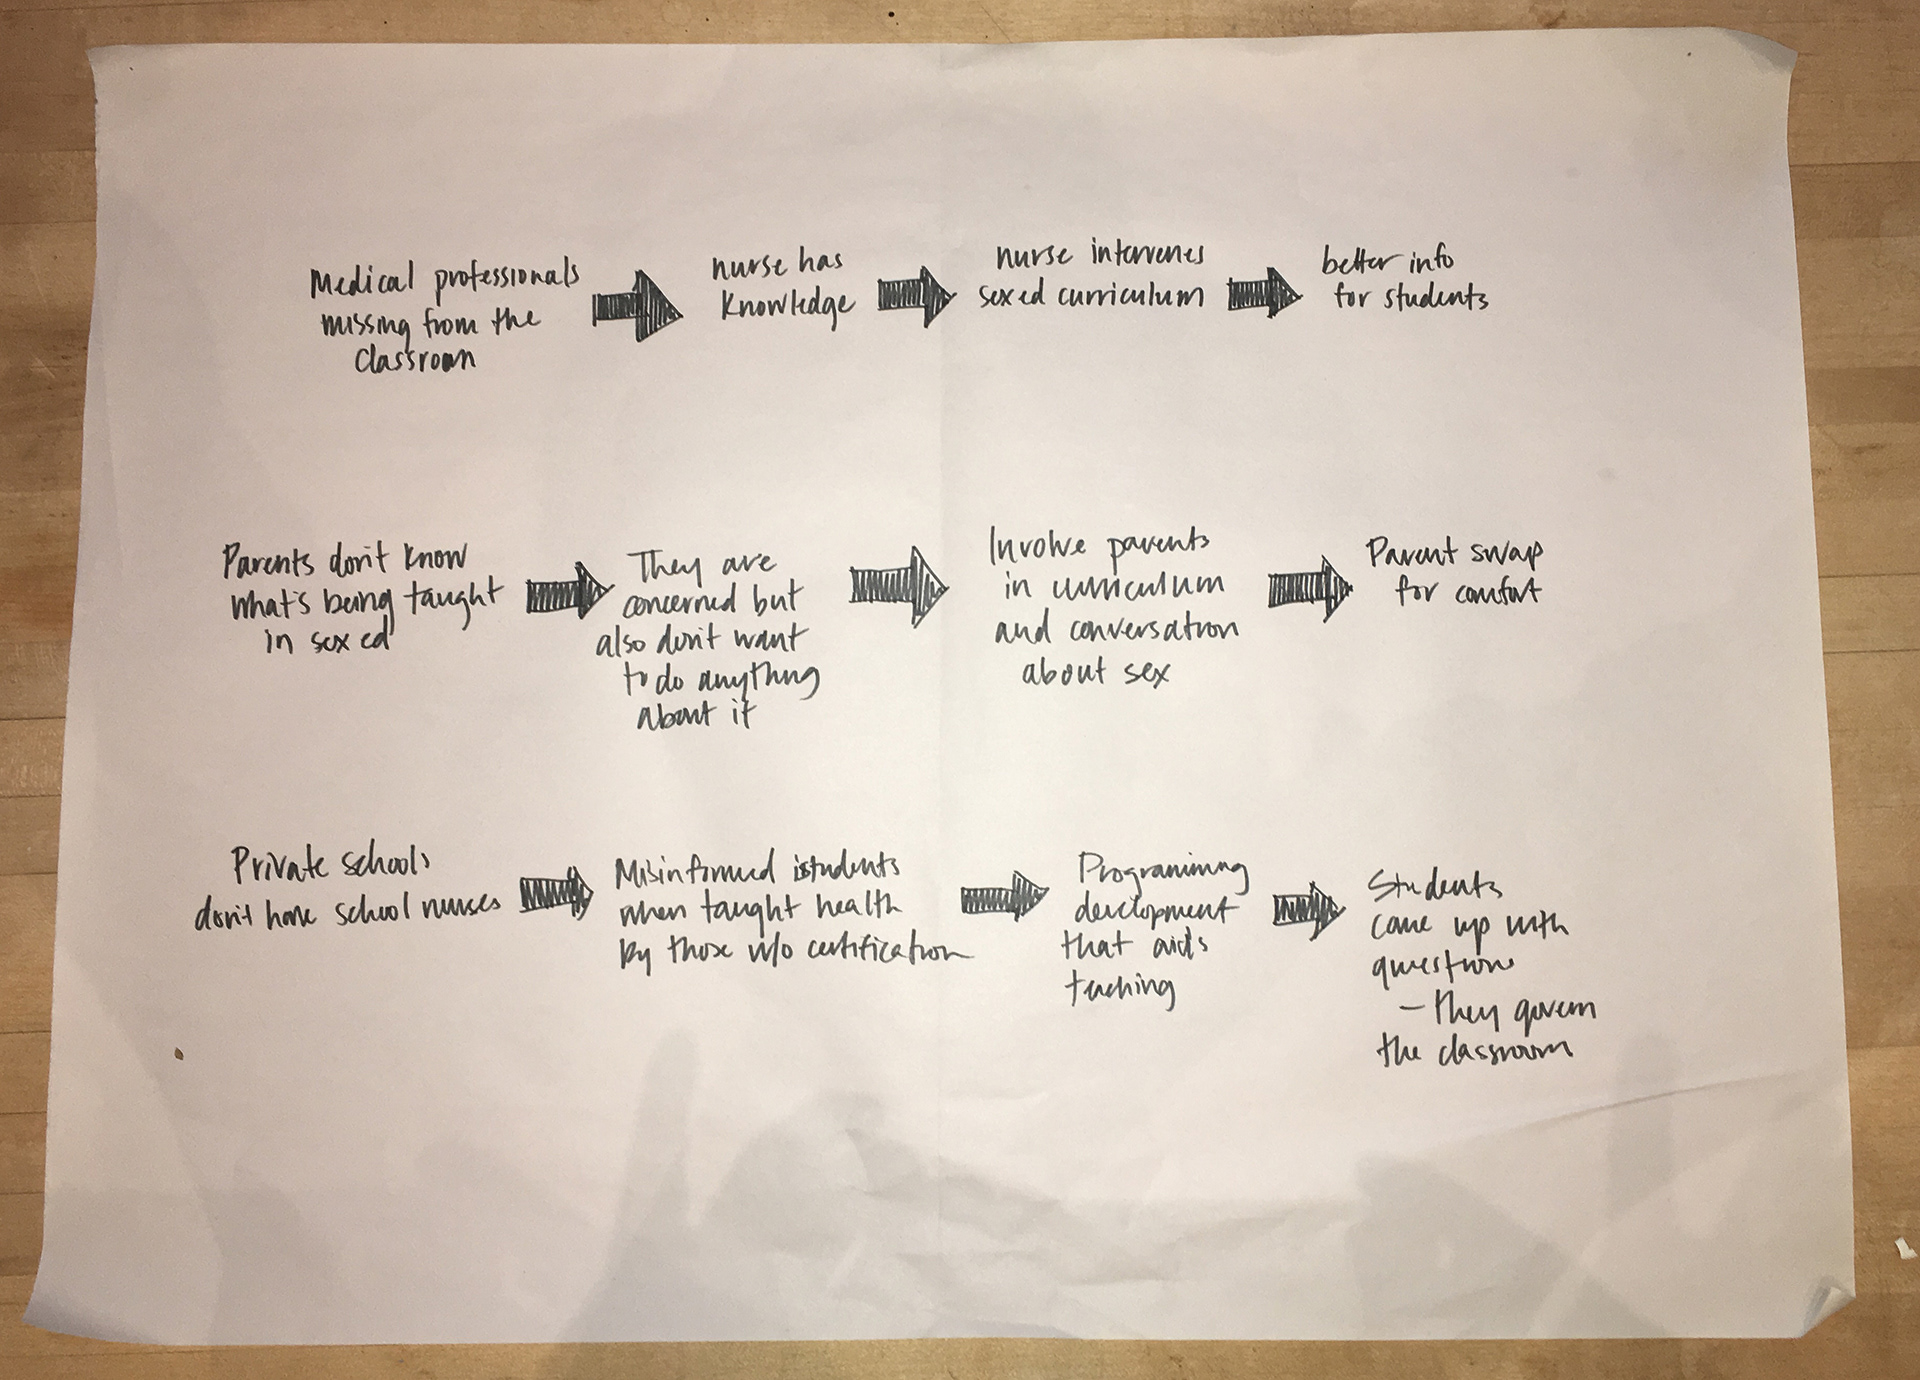 Medical professionals
missing from the
classroom
nurse has
knowledge
nurse intervenes
sex ed curriculum
better info
for students
Parents don't know
what's being taught
in sex ed
They are
concerned but
also don't want
to do anything
about it
Involve parents
in curriculum
and conversation
about sex
Parent swap
for comfort
Private schools
don't have school nurses
Misinformed students
when taught health
by those w/o certification
Programming
development
that aids
teaching
Students
come up with
questions
– they govern
the classroom